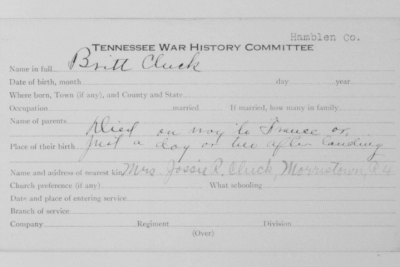 Hamblen Co.
TENNESSEE WAR HISTORY COMMITTEE
Name in full Britt Cluck
Date of birth, month day year
Where born, Town (if any), and County and State
Occupation married If married, how many in family
Name of parents Died on way to France or
Place of their birth Just a day or two after landing
Name and address of nearest kin Mrs. Jossie R. Cluck, Morristown,
Church preference (if any) What schooling
Date and place of entering service
Branch of service
Company Regiment Division
(Over)